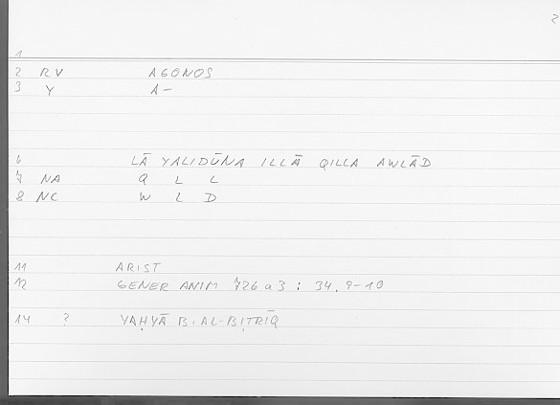 2
1
2 RV AGONOS
3 Y A-
6 LĀ YALIDŪNA ILLĀ QILLA AWLĀD
7 NA Q L L
8 NC W L D
11 ARIST
12 GENER ANIM 726a3 : 34.9-10
14 ? YAḤYĀ B. AL-BIṬRĪQ